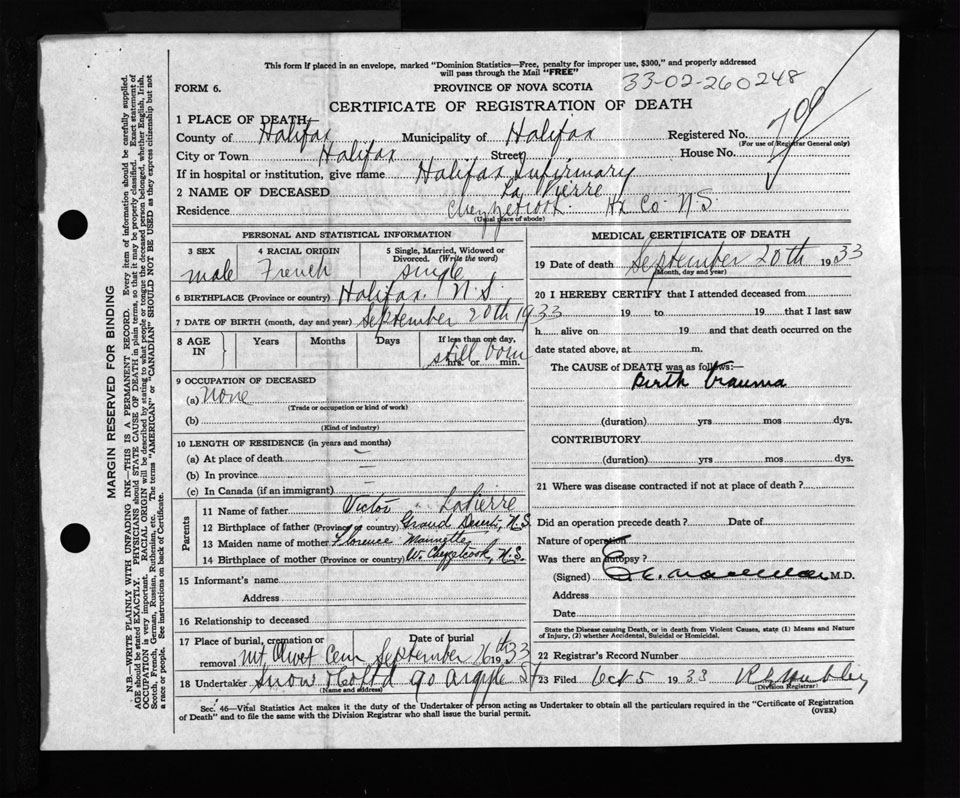 This form if placed in an envelope, marked "Dominion Statistics—Free, penalty for improper use, $300," and properly addressed
will pass through the Mail "FREE"
33-02-260248
FORM 6.
PROVINCE OF NOVA SCOTIA
CERTIFICATE OF REGISTRATION OF DEATH
1 PLACE OF DEATH
County of Halifax Municipality of Halifax Registered No.
(For use of Registrar General only)
City or Town Halifax Street House No.
If in hospital or institution, give name Halifax Infirmary
2 NAME OF DECEASED La Pierre
Residence Chezzetcook Hx Co. N.S.
(Usual place of abode)
PERSONAL AND STATISTICAL INFORMATION
3 SEX 4 RACIAL ORIGIN 5 Single, Married, Widowed or
Divorced. (Write the word)
male French single
6 BIRTHPLACE (Province or country) Halifax. N.S.
7 DATE OF BIRTH (month, day and year) September 20th 1933
8 AGE IN Years Months Days If less than one day,
still born
hrs. or min.
9 OCCUPATION OF DECEASED
(a) None
(Trade or occupation or kind of work)
(b)
(Kind of industry)
10 LENGTH OF RESIDENCE (in years and months)
(a) At place of death —
(b) In province —
(c) In Canada (if an immigrant) —
Parents
11 Name of father Victor LaPierre
12 Birthplace of father (Province or country) Grand Desert, N.S.
13 Maiden name of mother Florence Mannette
14 Birthplace of mother (Province or country) W. Chezzetcook, N.S.
15 Informant's name
Address
16 Relationship to deceased
17 Place of burial, cremation or Date of burial
removal Mt. Olivet Cem September 26th 1933
18 Undertaker Snow & Co Ltd 90 Argyle St
(Name and address)
MEDICAL CERTIFICATE OF DEATH
19 Date of death September 20th 1933
(Month, day and year)
20 I HEREBY CERTIFY that I attended deceased from
19 to 19 that I last saw
h alive on 19 and that death occurred on the
date stated above, at m.
The CAUSE of DEATH was as follows:—
Birth trauma
(duration) yrs mos dys.
CONTRIBUTORY
(duration) yrs mos dys.
21 Where was disease contracted if not at place of death?
Did an operation precede death? Date of
Nature of operation
Was there an autopsy?
(Signed) M.D.
Address
Date
State the Disease causing Death, or in death from Violent Causes, state (1) Means and Nature
of Injury, (2) whether Accidental, Suicidal or Homicidal.
22 Registrar's Record Number
23 Filed Oct 5 1933
(Division Registrar)
Sec. 46—Vital Statistics Act makes it the duty of the Undertaker or person acting as Undertaker to obtain all the particulars required in the "Certificate of Registration
of Death" and to file the same with the Division Registrar who shall issue the burial permit.
(OVER)
MARGIN RESERVED FOR BINDING
N.B.—WRITE PLAINLY WITH UNFADING INK—THIS IS A PERMANENT RECORD. Every item of information should be carefully supplied.
AGE should be stated EXACTLY. PHYSICIANS should STATE CAUSE OF DEATH in plain terms, so that it may be properly classified. Exact statement of
OCCUPATION is very important. RACIAL ORIGIN will be described by stating to what people or tongue the deceased person belonged, whether English, Irish,
Scotch, French, German, Russian, Ruthenian, etc. The terms "AMERICAN" or "CANADIAN" SHOULD NOT BE USED as they express citizenship but not
a race or people. See instructions on back of Certificate.